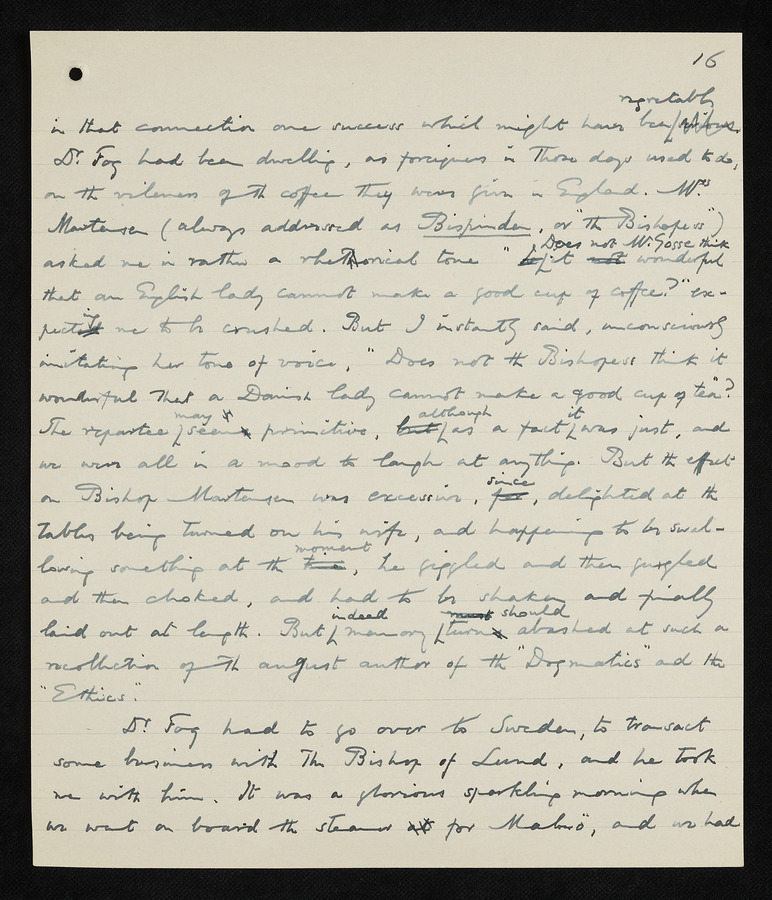 16
regretably
in that connection one success which might have been
Dr. Fog had been dwelling, as foreigners in those days used to do,
on the vileness of the coffee they were given in England. Mrs
Martensen (always addressed as Bispinden, or "the Bishopess")
asked me in rather a rhetorical tone "Does not Mr Gosse think it not wonderful
that an English lady cannot make a good cup of coffee?" ex-
pecting me to be crushed. But I instantly said, unconsciously
imitating her tone of voice, "Does not the Bishopess think it
wonderful that a Danish lady cannot make a good cup of tea"?
The repartee may seem primitive, but although as a fact it was just, and
we were all in a mood to laugh at anything. But the effect
on Bishop Martensen was excessive, for since, delighted at the
tables being turned on his wife, and happening to be swal-
lowing something at the time moment, he giggled and then gurgled
and then choked, and had to be shaken and finally
laid out at length. But indeed memory must should turn abashed at such a
recollection of the august author of the "Dogmatics" and the
"Ethics".
Dr. Fog had to go over to Sweden, to transact
some business with the Bishop of Lund, and he took
me with him. It was a glorious sparkling morning when
we went on board the steamer for Malmö, and we had